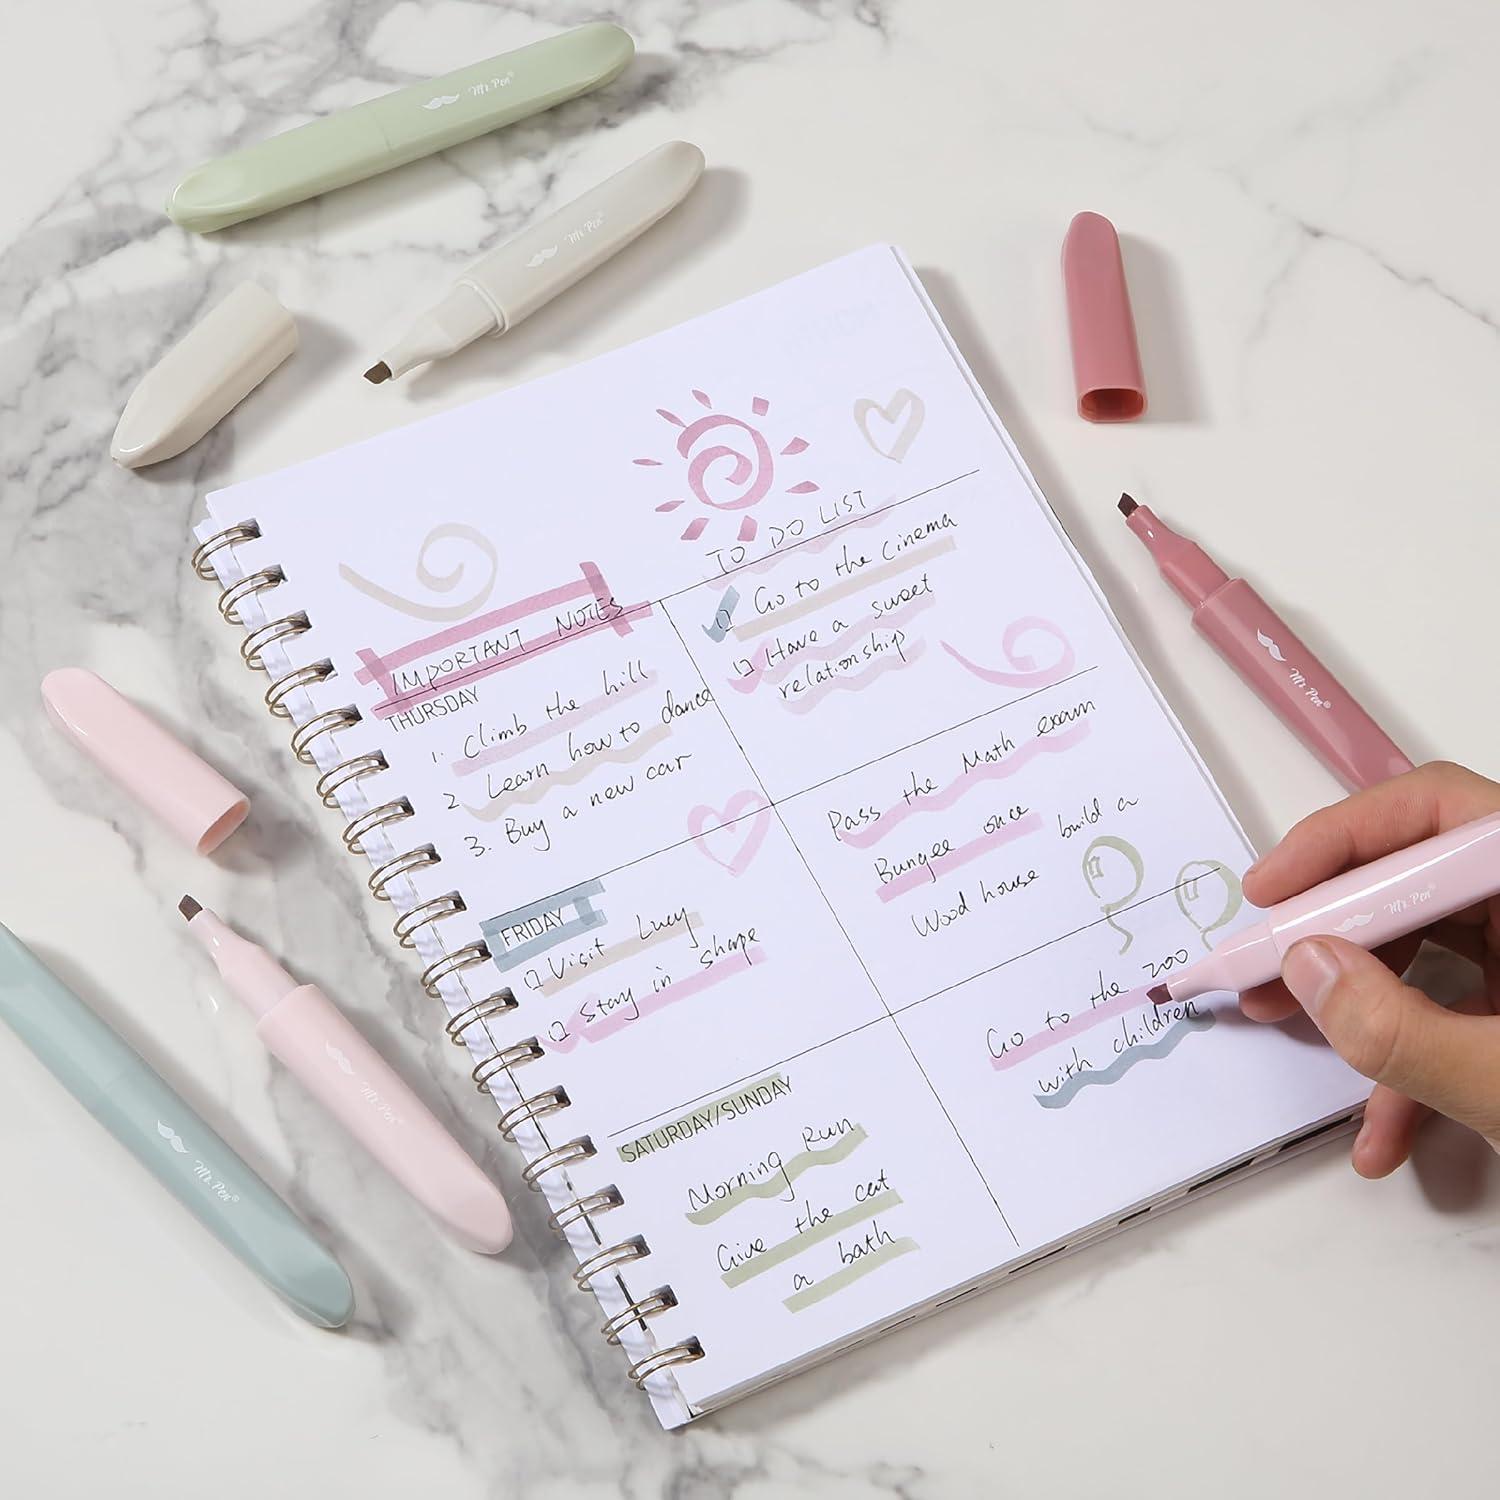 Mr. Pen®
Mr. Pen®
TO DO LIST
Go to the cinema
Have a sweet
relationship
IMPORTANT NOTES
THURSDAY
1. Climb the hill
2 Learn how to dance
3. Buy a new car
Pass the Math exam
Bungee once
build a
Wood house
FRIDAY
Visit Lucy
Stay in shape
Go to the zoo
with children
SATURDAY/SUNDAY
Morning Run
Give the cat
a bath
Mr. Pen®
Mr. Pen®
Mr. Pen®
Mr. Pen®